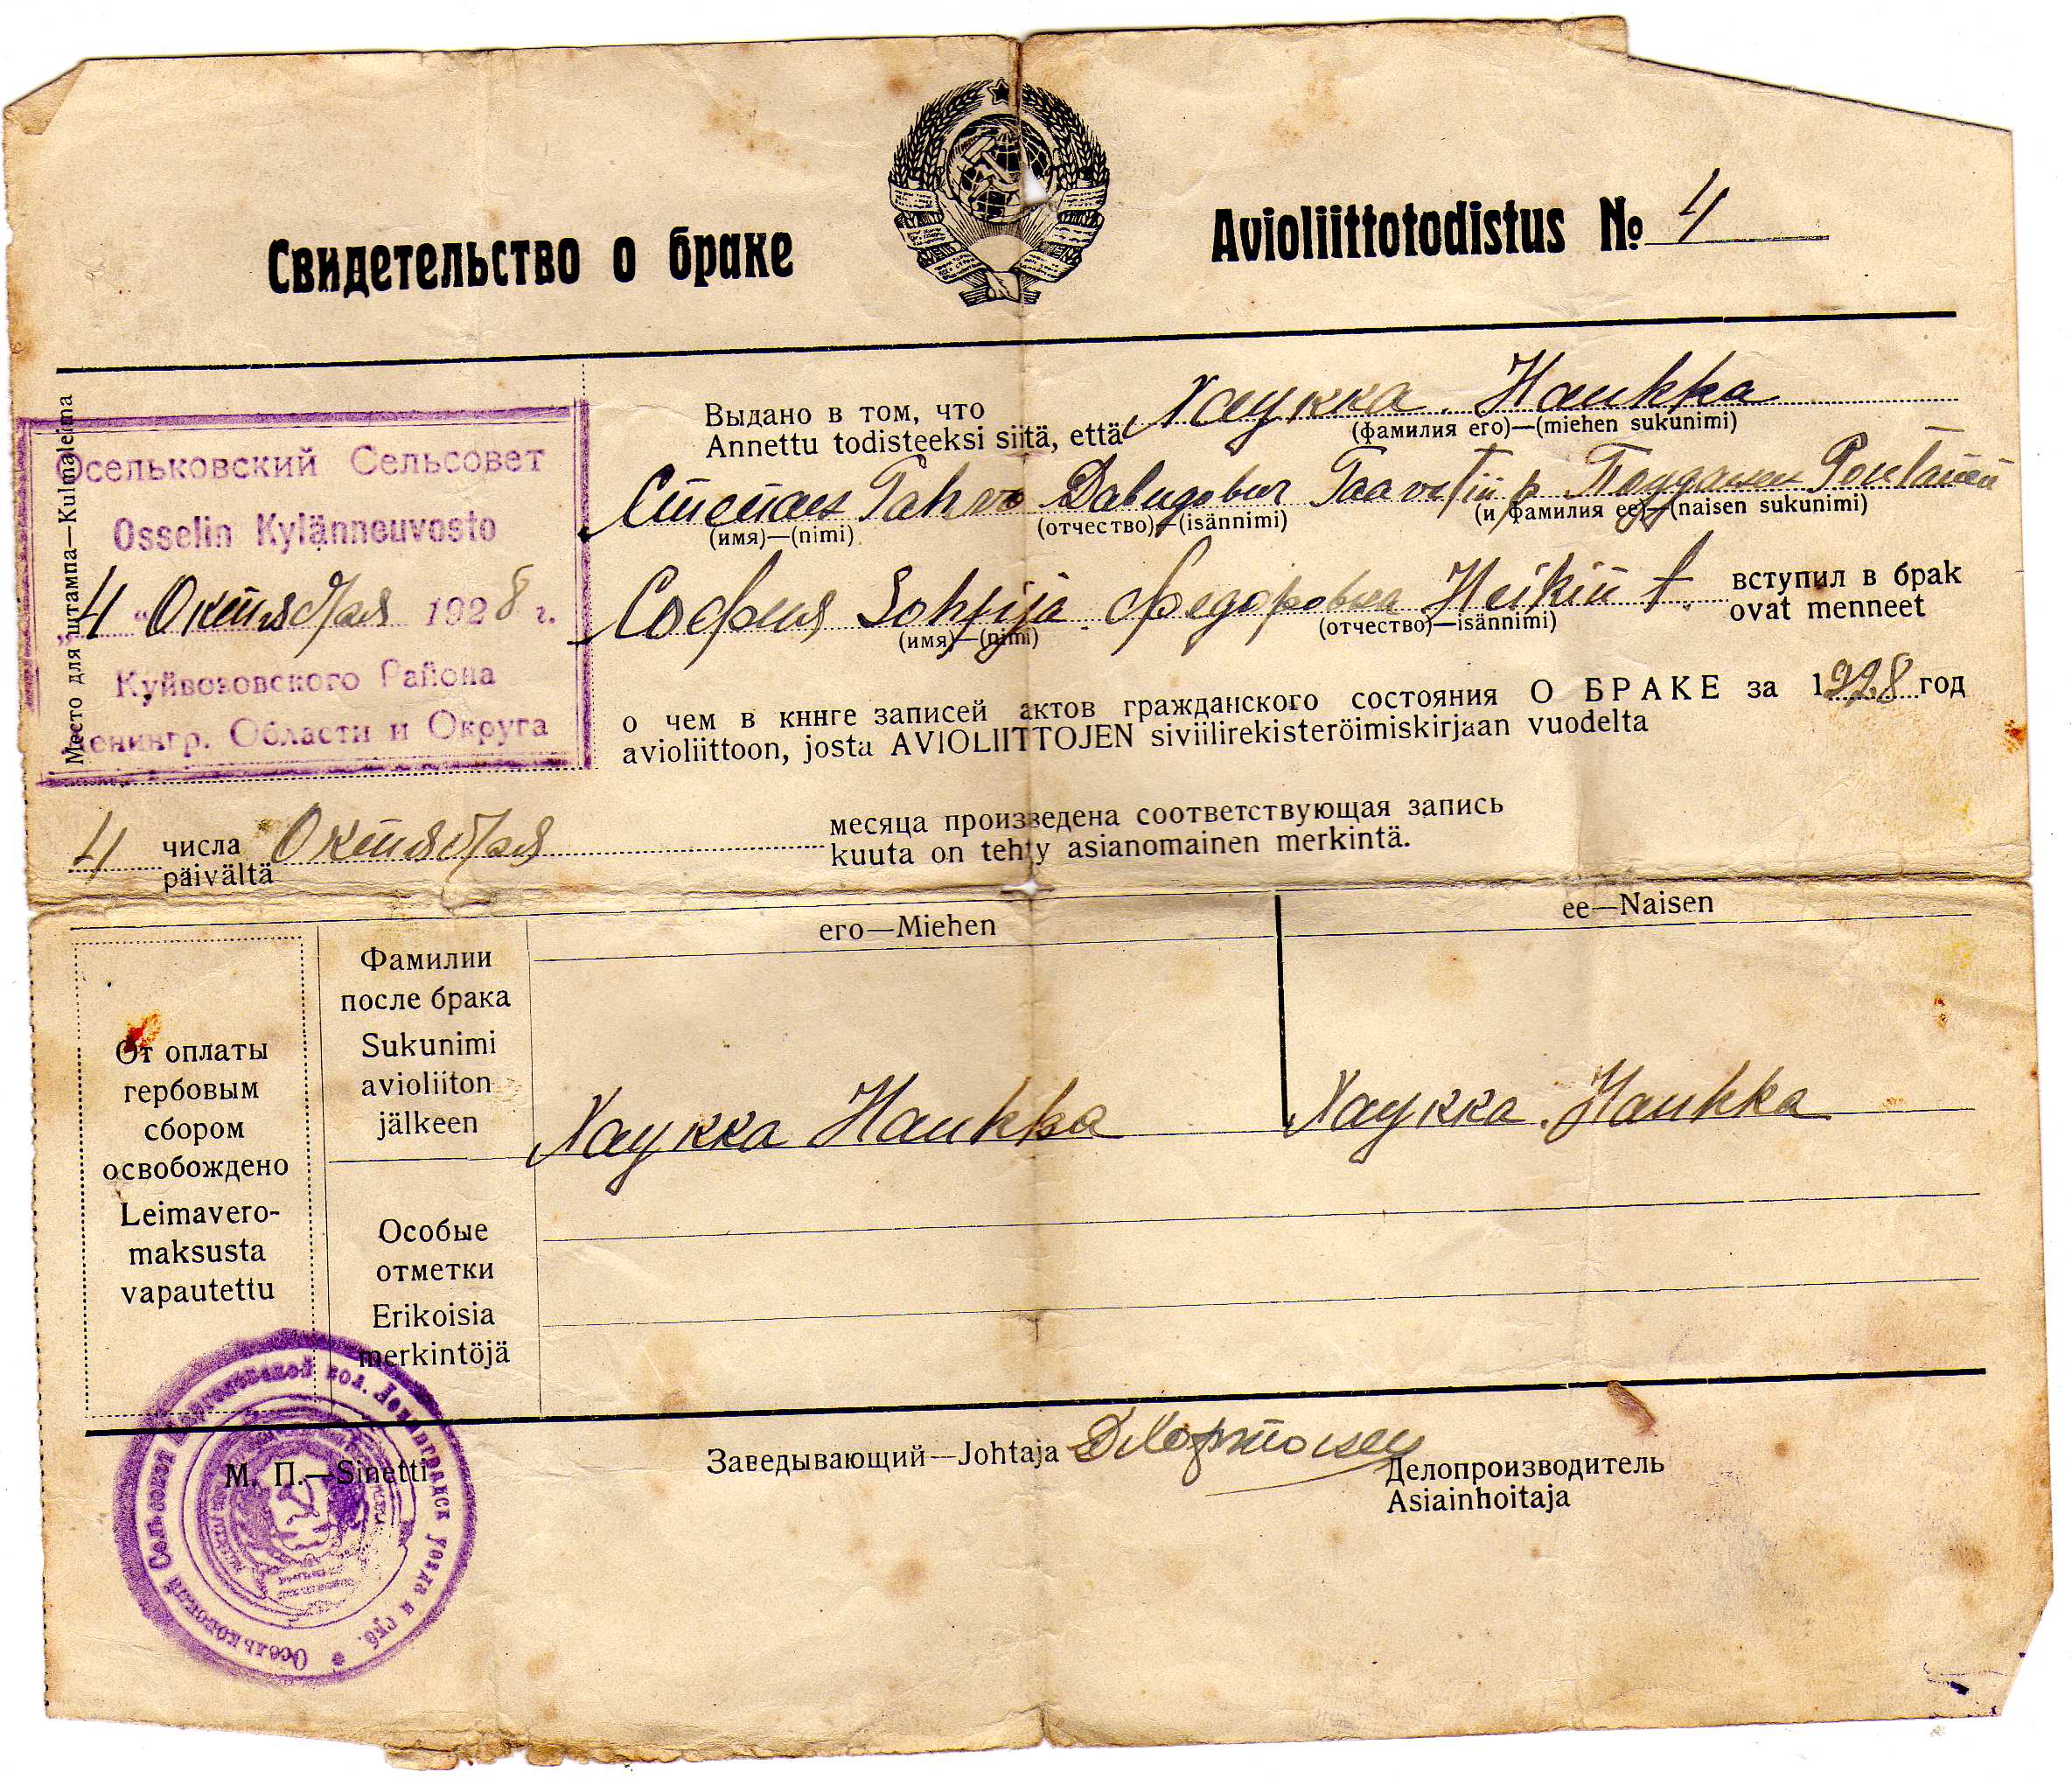 Свидетельство о браке
Avioliittotodistus № 4
Место для штампа—Kulmaleima
Осельковский Сельсовет
Osselin Kylänneuvosto
"4" Октября 1928 г.
Куйвозовского Района
Ленингр. Области и Округа
Выдано в том, что
Annettu todisteeksi siitä, että Хаукка. Haukka
(фамилия его)—(miehen sukunimi)
Степан Pahvo Давидович Taavetin p Поутанен Poutanen
(имя)—(nimi) (отчество)—(isännimi) (и фамилия ее)—(naisen sukunimi)
София Sohvija Федоровна Heikin t. вступил в брак
ovat menneet
(имя)—(nimi) (отчество)—isännimi)
о чем в кннге записей актов гражданского состояния О БРАКЕ за 1928 год
avioliittoon, josta AVIOLIITTOJEN siviilirekisteröimiskirjaan vuodelta
4 числа Октября месяца произведена соответствующая запись
päivältä kuuta on tehty asianomainen merkintä.
его—Miehen
ее—Naisen
От оплаты
гербовым
сбором
освобождено
Leimavero-
maksusta
vapautettu
Фамилии
после брака
Sukunimi
avioliiton
jälkeen
Хаукка Haukka
Хаукка. Haukka
Особые
отметки
Erikoisia
merkintöjä
М. П.—Sinetti
Осельковский Сельсовет Парголовской вол. Ленинградск уезда и губ.
Заведывающий—Johtaja
Делопроизводитель
Asiainhoitaja